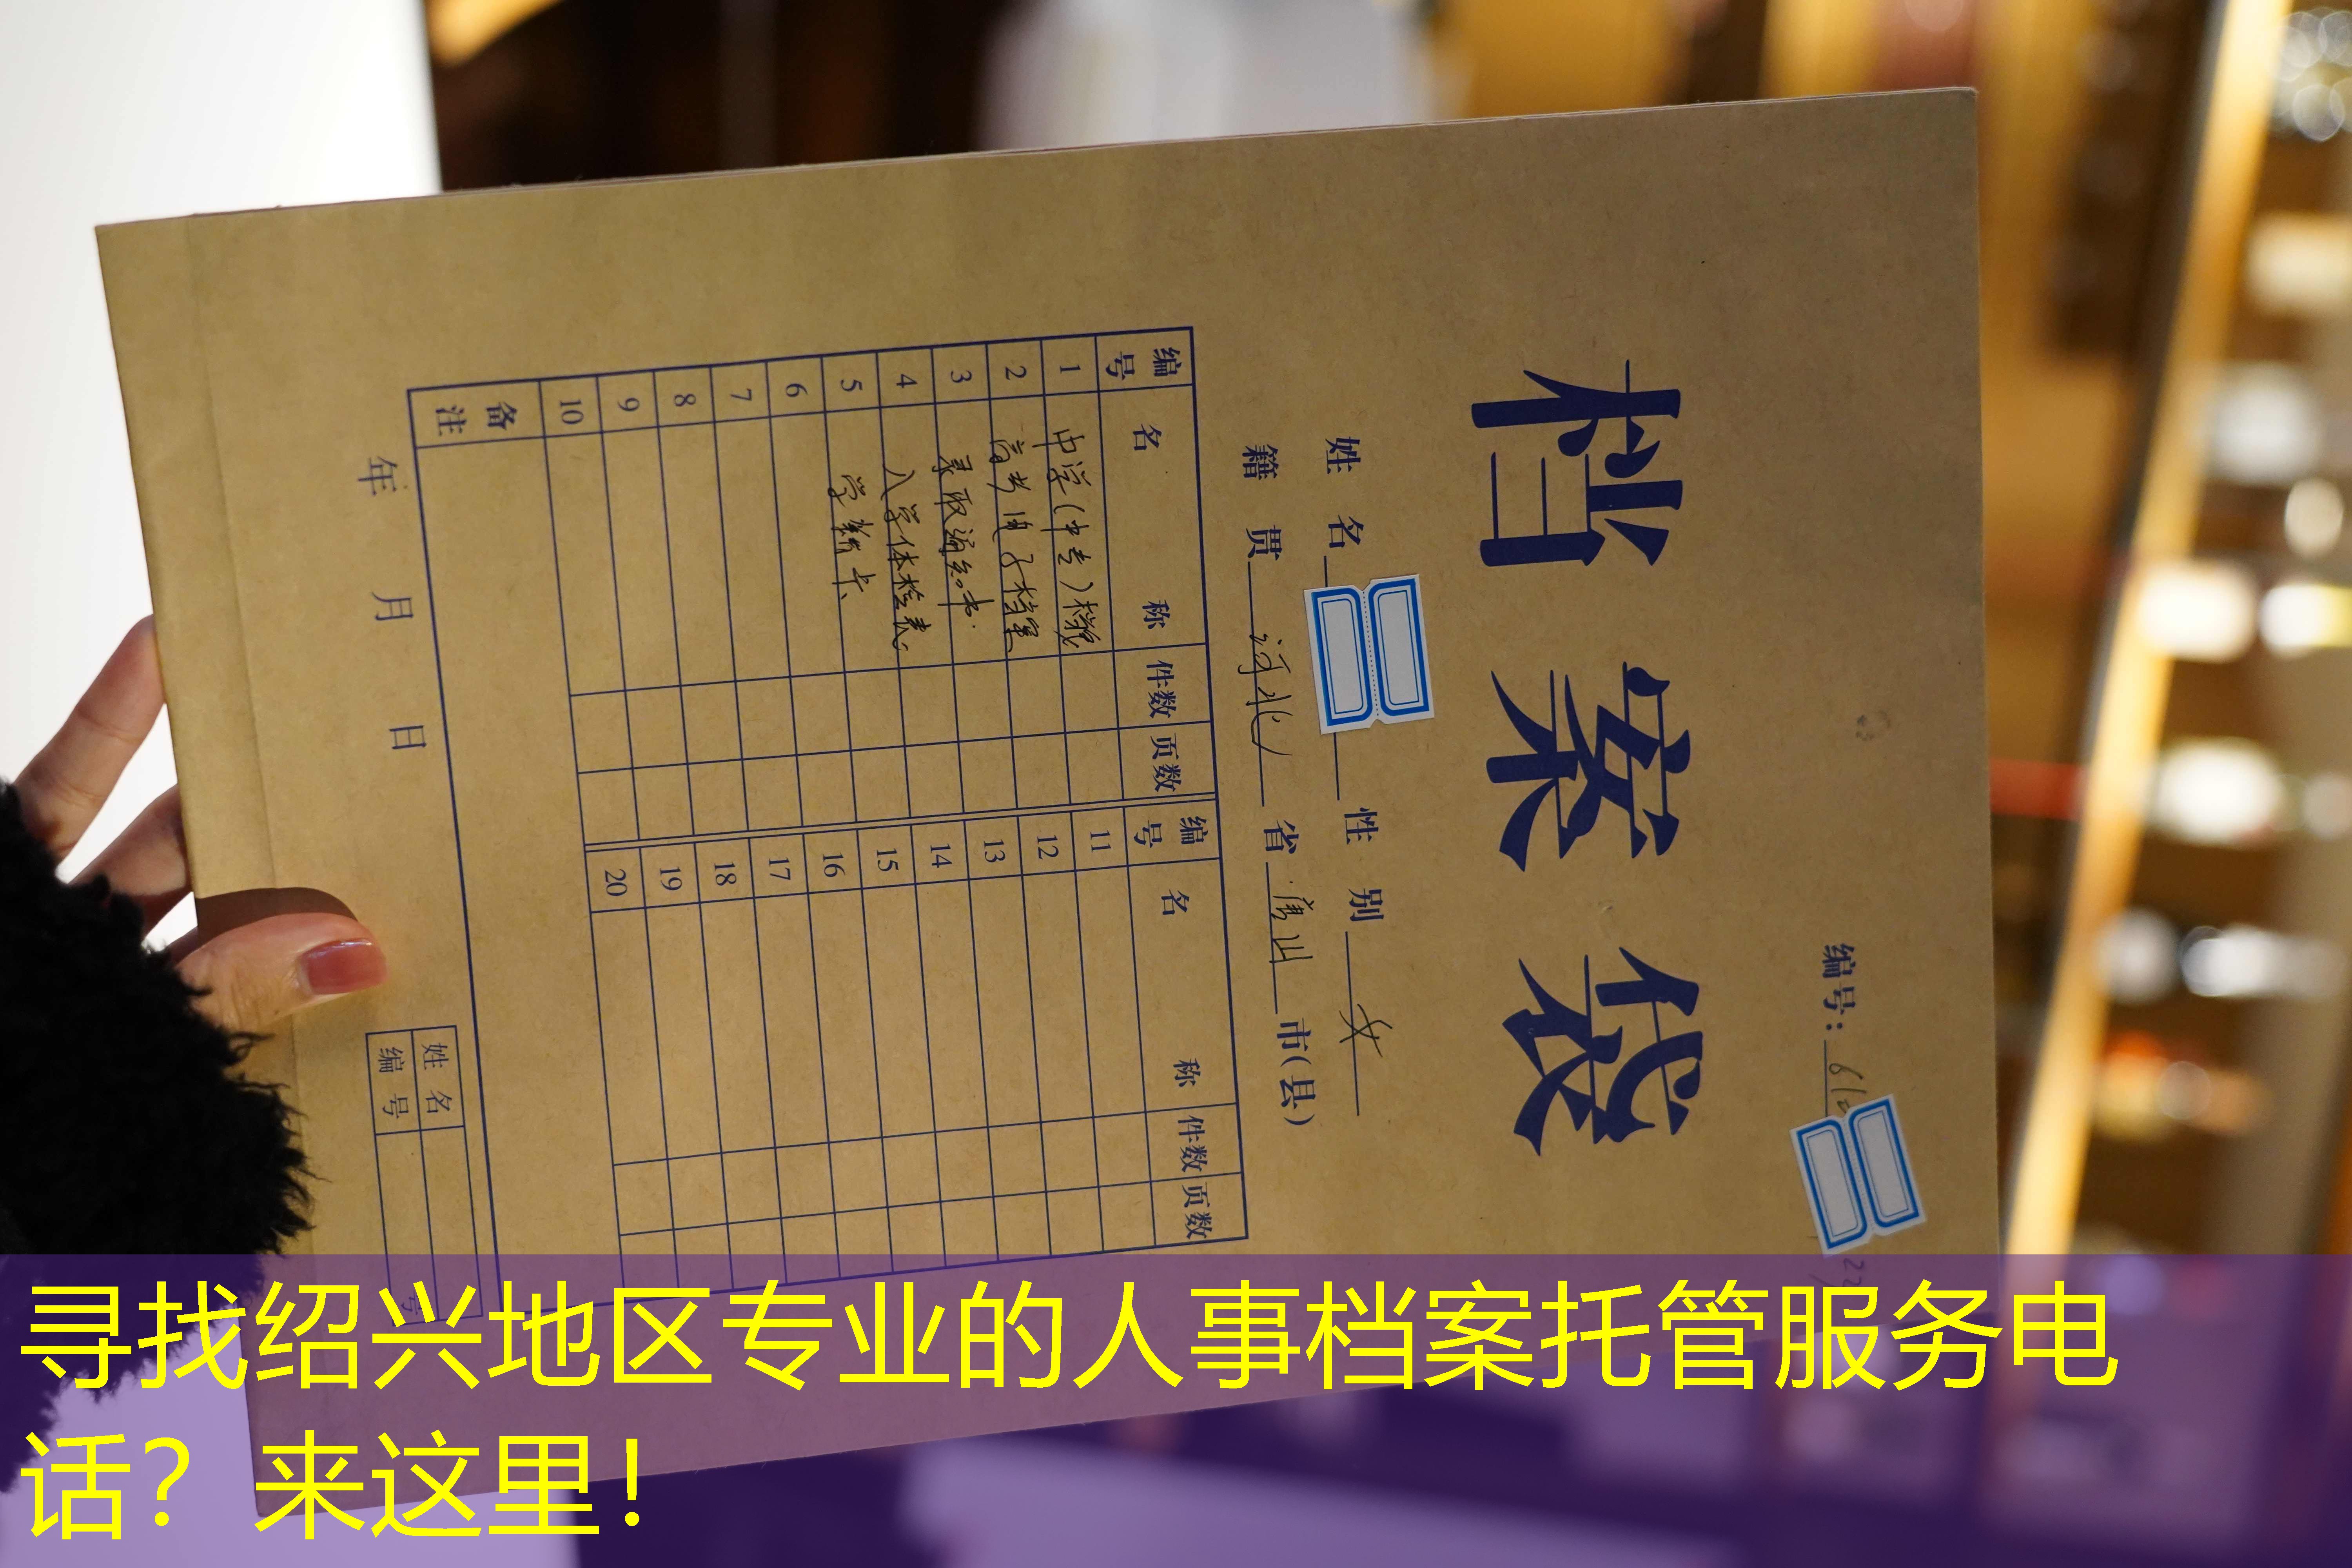 编号：
档案袋
姓名 性别 女
籍贯 河北 省 唐山 市(县)
编号 名称 件数 页数 编号 名称 件数 页数
1 中学(中专)档案 11
2 高考电子档案 12
3 录取通知书. 13
4 入学体检表 14
5 学籍卡 15
6 16
7 17
8 18
9 19
10 20
备注
年 月 日
姓名
编号 号
寻找绍兴地区专业的人事档案托管服务电
话？来这里！